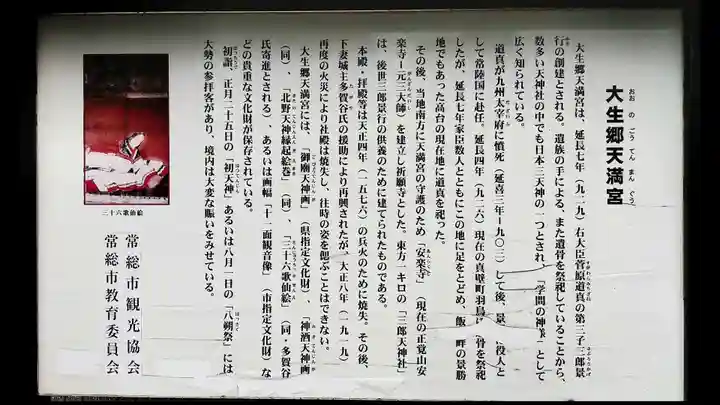 大生郷天満宮
おおのごうてんまんぐう
大生郷天満宮は、延長七年（九二九）右大臣菅原道真の第三子三郎景
行の創建とされる。遺族の手による、また遺骨を祭祀していることから、
数多い天神社の中でも日本三天神の一つとされ、「学問の神様」として
広く知られている。
道真が九州太宰府に憤死（延喜三年-九〇三）して後、景 役人と
して常陸国に赴任。延長四年（九二六）現在の真壁町羽鳥に 骨を祭祀
したが、延長七年家臣数人とともにこの地に足をとどめ、飯 畔の景勝
地でもあった高台の現在地に道真を祀った。
その後、当地南方に天満宮の守護のため「安楽寺」（現在の正覚山安
楽寺-元三大師）を建立し祈願寺とした。東方一キロの「三郎天神社」
は、後世三郎景行の供養のために建てられたものである。
本殿・拝殿等は天正四年（一五七六）の兵火のために焼失。その後、
下妻城主多賀谷氏の援助により再興されたが、大正八年（一九一九）
再度の火災により社殿は焼失し、往時の姿を偲ぶことはできない。
大生郷天満宮には、「御廟天神画」（県指定文化財）、「神酒天神画」
（同）、「北野天神縁起絵巻」（同）、「三十六歌仙絵」（同・多賀谷
氏寄進とされる）、あるいは画幅「十一面観音像」（市指定文化財）な
どの貴重な文化財が保存されている。
初詣、正月二十五日の「初天神」あるいは八月一日の「八朔祭」には
大勢の参拝客があり、境内は大変な賑いをみせている。
常総市観光協会
常総市教育委員会
三十六歌仙絵